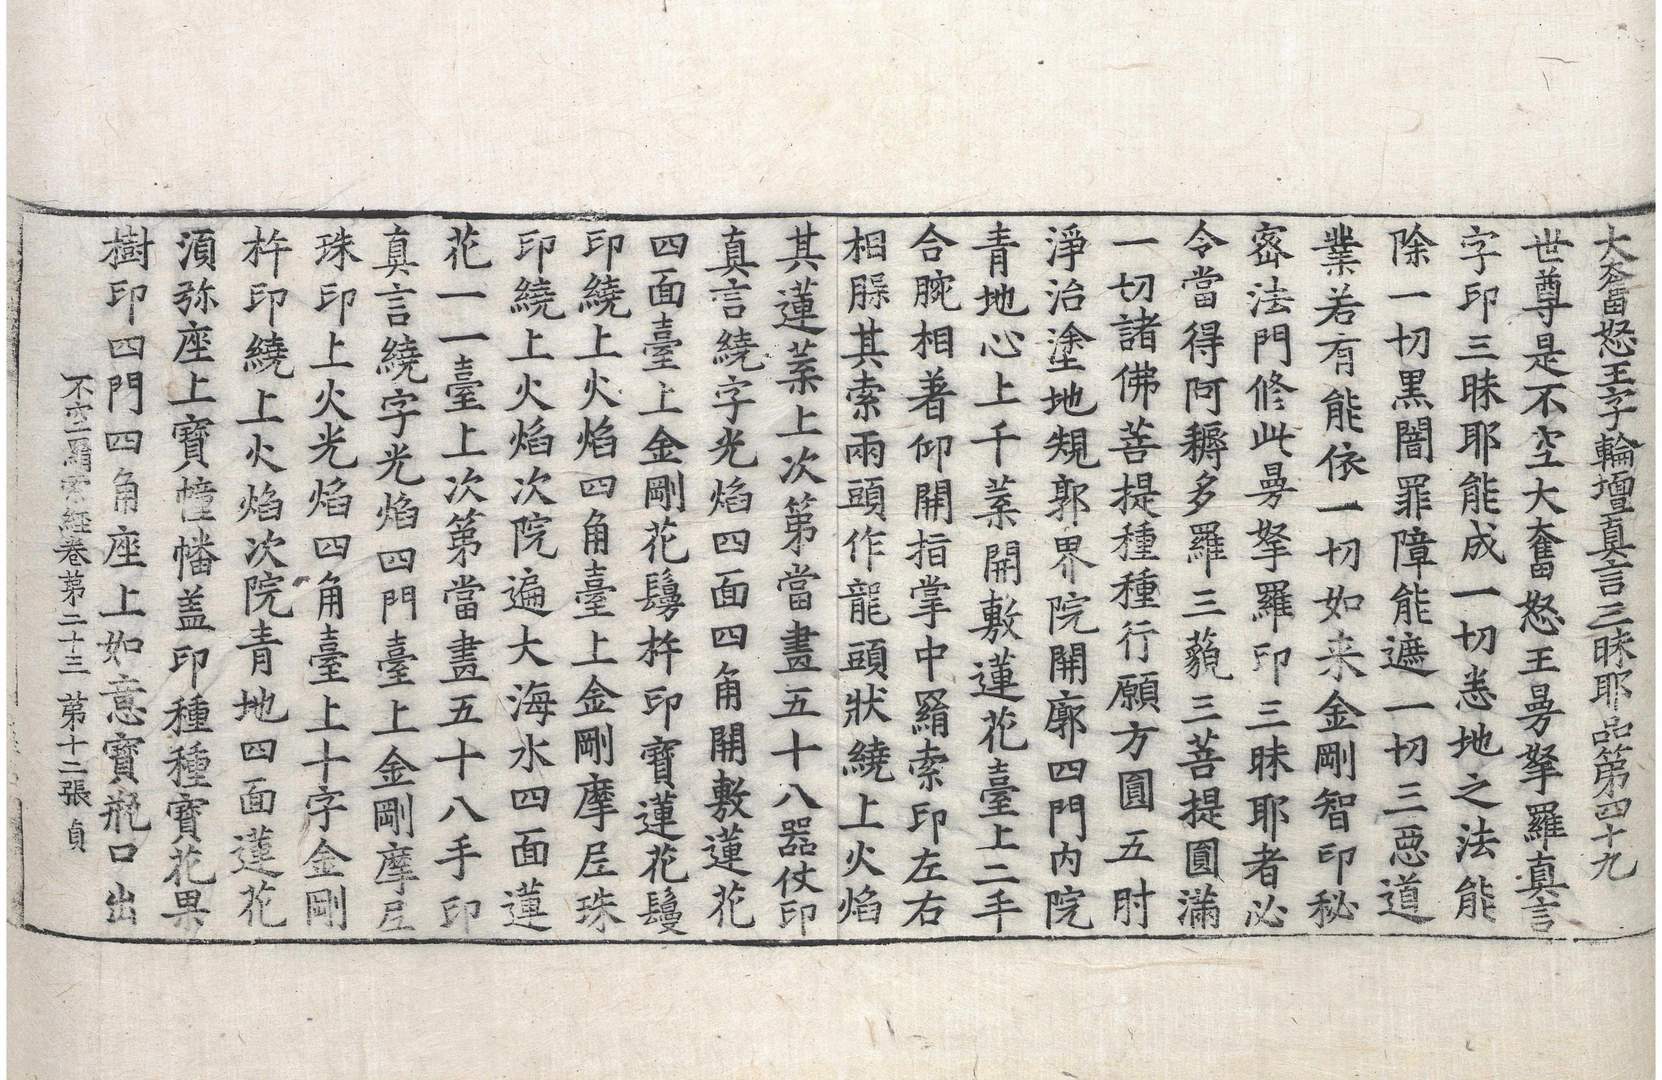 大奮怒王字輪壇真言三昧耶品第四十九
世尊是不空大奮怒王曼拏羅真言
字印三昧耶能成一切悉地之法能
除一切黑闇罪障能遮一切三惡道
業若有能依一切如来金剛智印秘
密法門修此曼拏羅印三昧耶者必
令當得阿耨多羅三藐三菩提圓滿
一切諸佛菩提種種行願方圓五肘
淨治塗地規郭界院開廓四門内院
青地心上千葉開敷蓮花臺上二手
合腕相著仰開指掌中羂索印左右
相髁其索兩頭作龍頭狀繞上火焰
其蓮葉上次第當畫五十八器仗印
真言繞字光焰四面四角開敷蓮花
四面臺上金剛花鬘杵印寶蓮花鬘
印繞上火焰四角臺上金剛摩尼珠
印繞上火焰次院遍大海水四面蓮
花一一臺上次第當畫五十八手印
真言繞字光焰四門臺上金剛摩尼
珠印上火光焰四角臺上十字金剛
杵印繞上火焰次院青地四面蓮花
須弥座上寶幢幡盖印種種寶花果
樹印四門四角座上如意寶瓶口出
不空羂索經卷第二十三 第十二張 貞